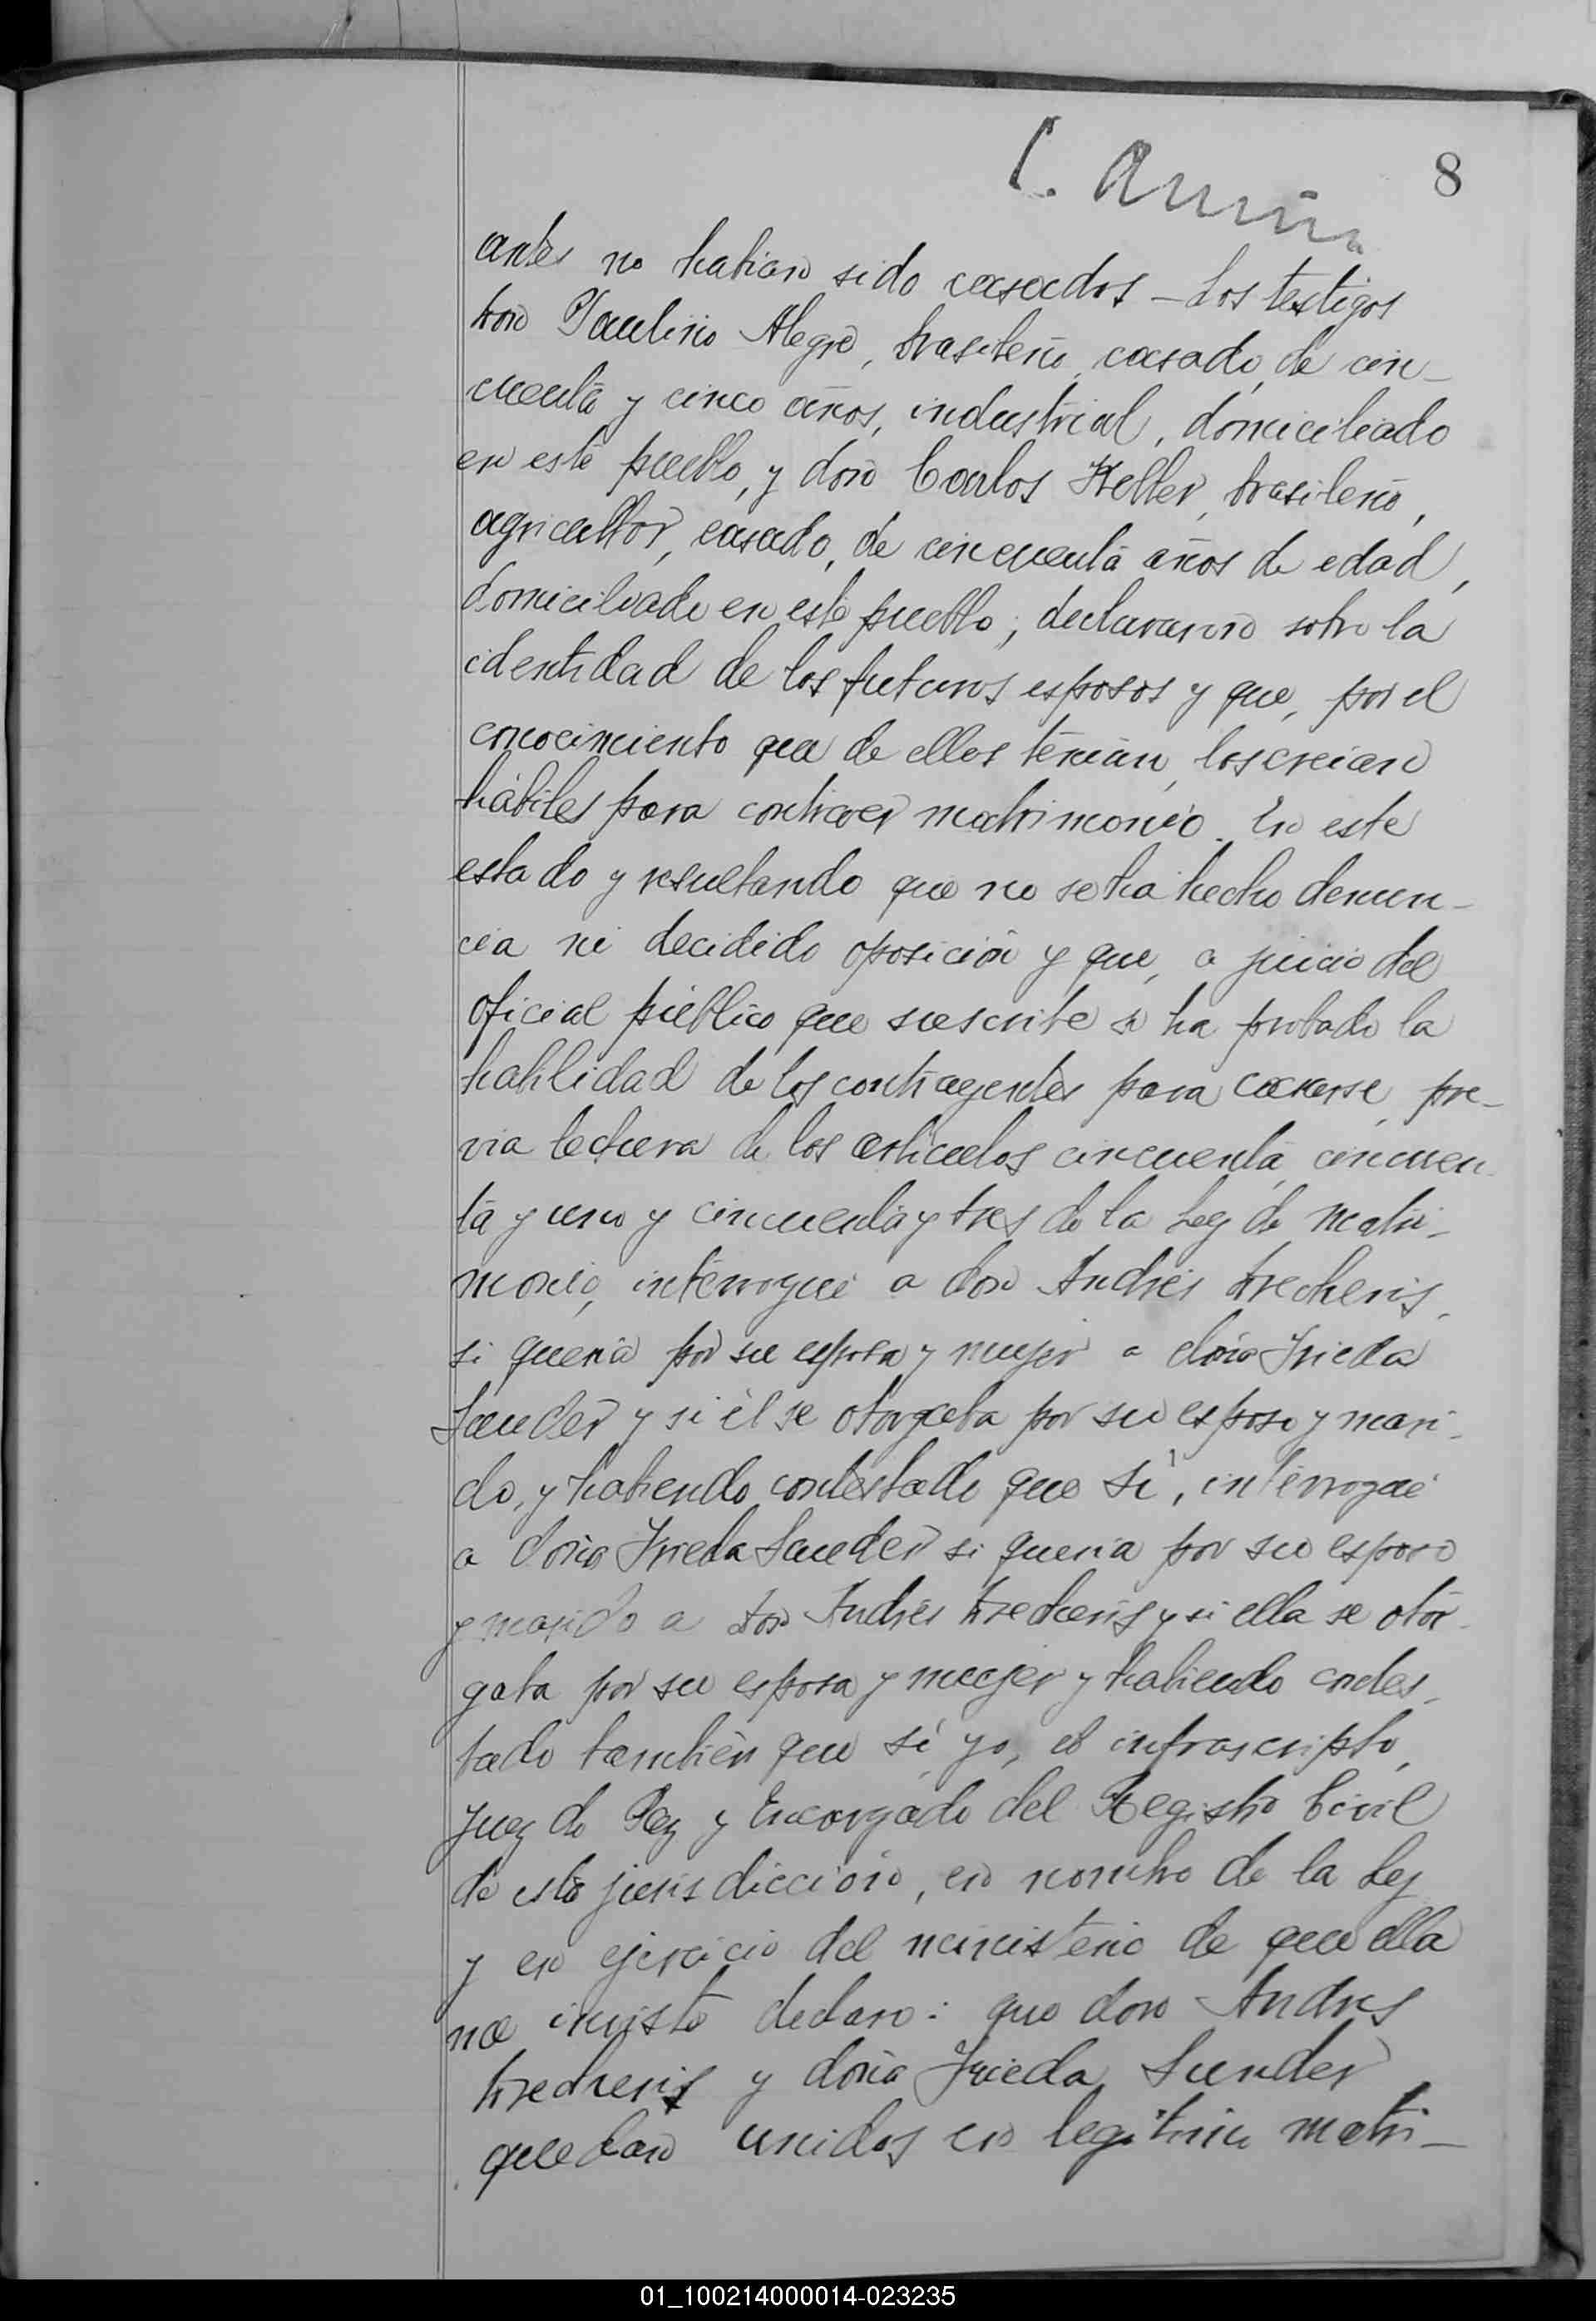 8
antes no habian sido casados – Los testigos
don Paulino Alegre, brasileño, casado, de cin–
cuenta y cinco años, industrial, domiciliado
en este pueblo, y don Carlos Keller, brasileño,
agricultor, casado, de cincuenta años de edad,
domiciliado en este pueblo; declararon sobre la
identidad de los futuros esposos y que, por el
conocimiento que de ellos tenian, los creian
hábiles para contraer matrimonio. En este
estado y resultando que no se ha hecho denun–
cia ni decidido oposición y que, a juicio del
oficial público que suscribe se ha probado la
habilidad de los contrayentes para casarse, pre–
via lectura de los artículos cincuenta, cincuen
ta y uno y cincuenta y tres de la Ley de matri–
monio, interrogué a don Andrés
si queria por su esposa y mujer a doña Frieda
Sander y si él se otorgaba por su esposo y mari–
do, y habiendo contestado que sí, interrogué
a doña Frieda Sander si queria por su esposo
y marido a don Andrés y si ella se otor–
gaba por su esposa y mujer y habiendo contes–
tado también que sí, yo, el infrascripto,
Juez de Paz y Encargado del Registro Civil
de esta jurisdicción, en nombre de la Ley
y en ejercicio del ministerio de que ella
me inviste declaro: que don Andres
y doña Frieda Sander
quedan unidos en legítimo matri–
01_100214000014-023235